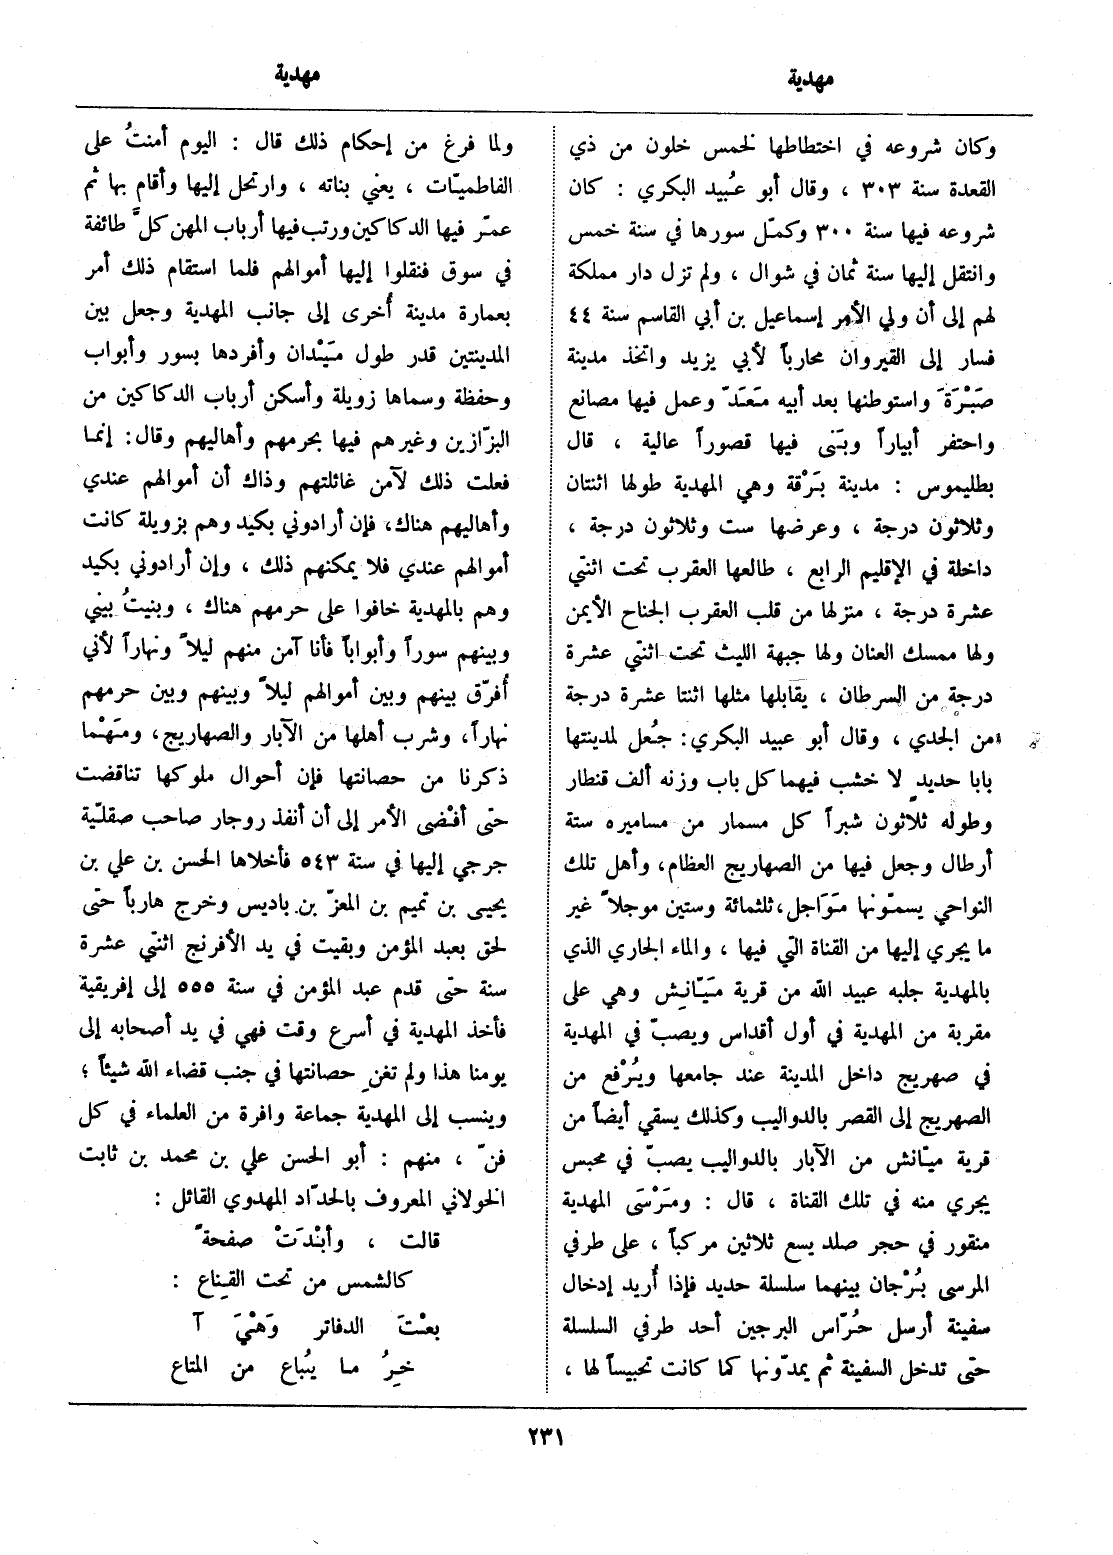 مهدية
مهدية
وكان شروعه في اختطاطها لخمس خلون من ذي
القعدة سنة ٣٠٣ ، وقال أبو عُبيد البكري : كان
شروعه فيها سنة ٣٠٠ وكمّل سورها في سنة خمس
وانتقل إليها سنة ثمان في شوال ، ولم تزل دار مملكة
لهم إلى أن ولي الأمر إسماعيل بن أبي القاسم سنة ٤٤
فسار إلى القيروان محارباً لأبي يزيد واتخذ مدينة
صَبْرَةَ واستوطنها بعد أبيه مَعَدّ وعمل فيها مصانع
واحتفر أبياراً وبَنى فيها قصوراً عالية ، قال
بطليموس : مدينة بَرْقة وهي المهدية طولها اثنتان
وثلاثون درجة ، وعرضها ست وثلاثون درجة ،
داخلة في الإقليم الرابع ، طالعها العقرب تحت اثنتي
عشرة درجة ، منزلها من قلب العقرب الجناح الأيمن
ولها ممسك العنان ولها جبهة الليث تحت اثنتي عشرة
درجة من السرطان ، يقابلها مثلها اثنتا عشرة درجة
من الجدي ، وقال أبو عبيد البكري : جُعل لمدينتها
بابا حديدٍ لا خشب فيهما كل باب وزنه ألف قنطار
وطوله ثلاثون شبراً كل مسمار من مساميره ستة
أرطال وجعل فيها من الصهاريج العظام، وأهل تلك
النواحي يسمّونها مَوَاجل، ثلثمائة وستين موجلاً غير
ما يجري إليها من القناة التي فيها ، والماء الجاري الذي
بالمهدية جلبه عبيد الله من قرية مَيّانِش وهي على
مقربة من المهدية في أول أقداس ويصبّ في المهدية
في صهريج داخل المدينة عند جامعها ويُرْفع من
الصهريج إلى القصر بالدواليب وكذلك يسقي أيضاً من
قرية ميّانش من الآبار بالدواليب يصبّ في محبس
يجري منه في تلك القناة ، قال : ومَرْسَى المهدية
منقور في حجر صلد يسع ثلاثين مركباً ، على طرفي
المرسى بُرْجان بينهما سلسلة حديد فإذا أُريد إدخال
سفينة أرسل حُرّاس البرجين أحد طرفي السلسلة
حتى تدخل السفينة ثم يمدّونها كما كانت تحبيساً لها ،
ولما فرغ من إحكام ذلك قال : اليوم أمنتُ على
الفاطميّات ، يعني بناته ، وارتحل إليها وأقام بها ثم
عمّر فيها الدكاكين ورتب فيها أرباب المهن كلَّ طائفة
في سوق فنقلوا إليها أموالهم فلما استقام ذلك أمر
بعمارة مدينة أُخرى إلى جانب المهدية وجعل بين
المدينتين قدر طول مَيْدان وأفردها بسور وأبواب
وحفظة وسماها زويلة وأسكن أرباب الدكاكين من
البزّازين وغيرهم فيها بحرمهم وأهاليهم وقال: إنما
فعلت ذلك لآمن غائلتهم وذاك أن أموالهم عندي
وأهاليهم هناك، فإن أرادوني بكيد وهم بزويلة كانت
أموالهم عندي فلا يمكنهم ذلك ، وإن أرادوني بكيد
وهم بالمهدية خافوا على حرمهم هناك ، وبنيتُ بيني
وبينهم سوراً وأبواباً فأنا آمن منهم ليلاً ونهاراً لأني
أُفرّق بينهم وبين أموالهم ليلاً وبينهم وبين حرمهم
نهاراً، وشرب أهلها من الآبار والصهاريج، ومَهْما
ذكرنا من حصانتها فإن أحوال ملوكها تناقضت
حتى أفضى الأمر إلى أن أنفذ روجار صاحب صقلّية
جرجي إليها في سنة ٥٤٣ فأخلاها الحسن بن علي بن
يحيى بن تميم بن المعزّ بن باديس وخرج هارباً حتى
لحق بعبد المؤمن وبقيت في يد الأفرنج اثنتي عشرة
سنة حتى قدم عبد المؤمن في سنة ٥٥٥ إلى إفريقية
فأخذ المهدية في أسرع وقت فهي في يد أصحابه إلى
يومنا هذا ولم تغنِ حصانتها في جنب قضاء الله شيئاً ؛
وينسب إلى المهدية جماعة وافرة من العلماء في كل
فنّ ، منهم : أبو الحسن علي بن محمد بن ثابت
الخولاني المعروف بالحدّاد المهدوي القائل :
قالت ، وأَبْدَتْ صفحةً
كالشمس من تحت القِناع :
بعتَ الدفاتر وَهْيَ آ
خِرُ ما يُباع من المتاع
٢٣١